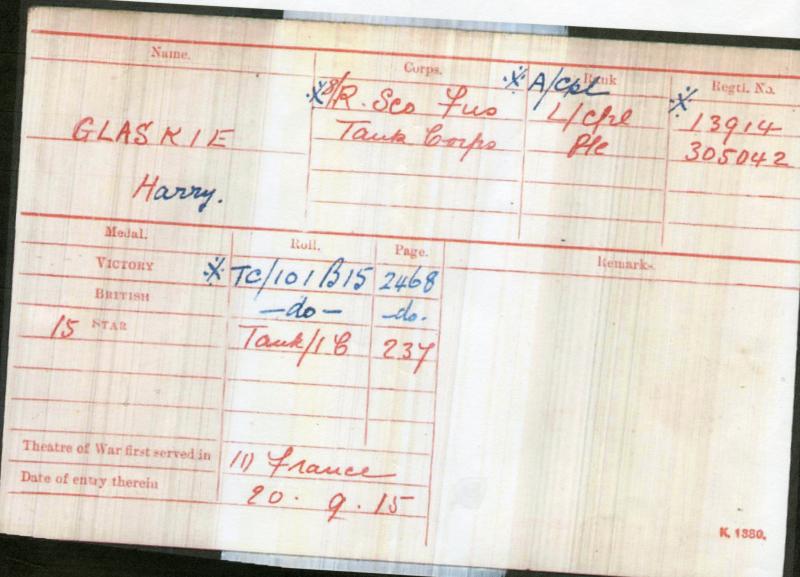 Name. Corps. Rank Regtl. No.
※ 8/R. Sco Fus ※ A/Cpl L/Cpl ※ 13914
GLASKIE Tank Corps Pte 305042
Harry.
Medal. Roll. Page. Remarks.
VICTORY ※ TC/101 B15 2468
BRITISH —do— —do.
15 STAR Tank/1 B 237
Theatre of War first served in (1) France
Date of entry therein 20. 9. 15
K. 1380.